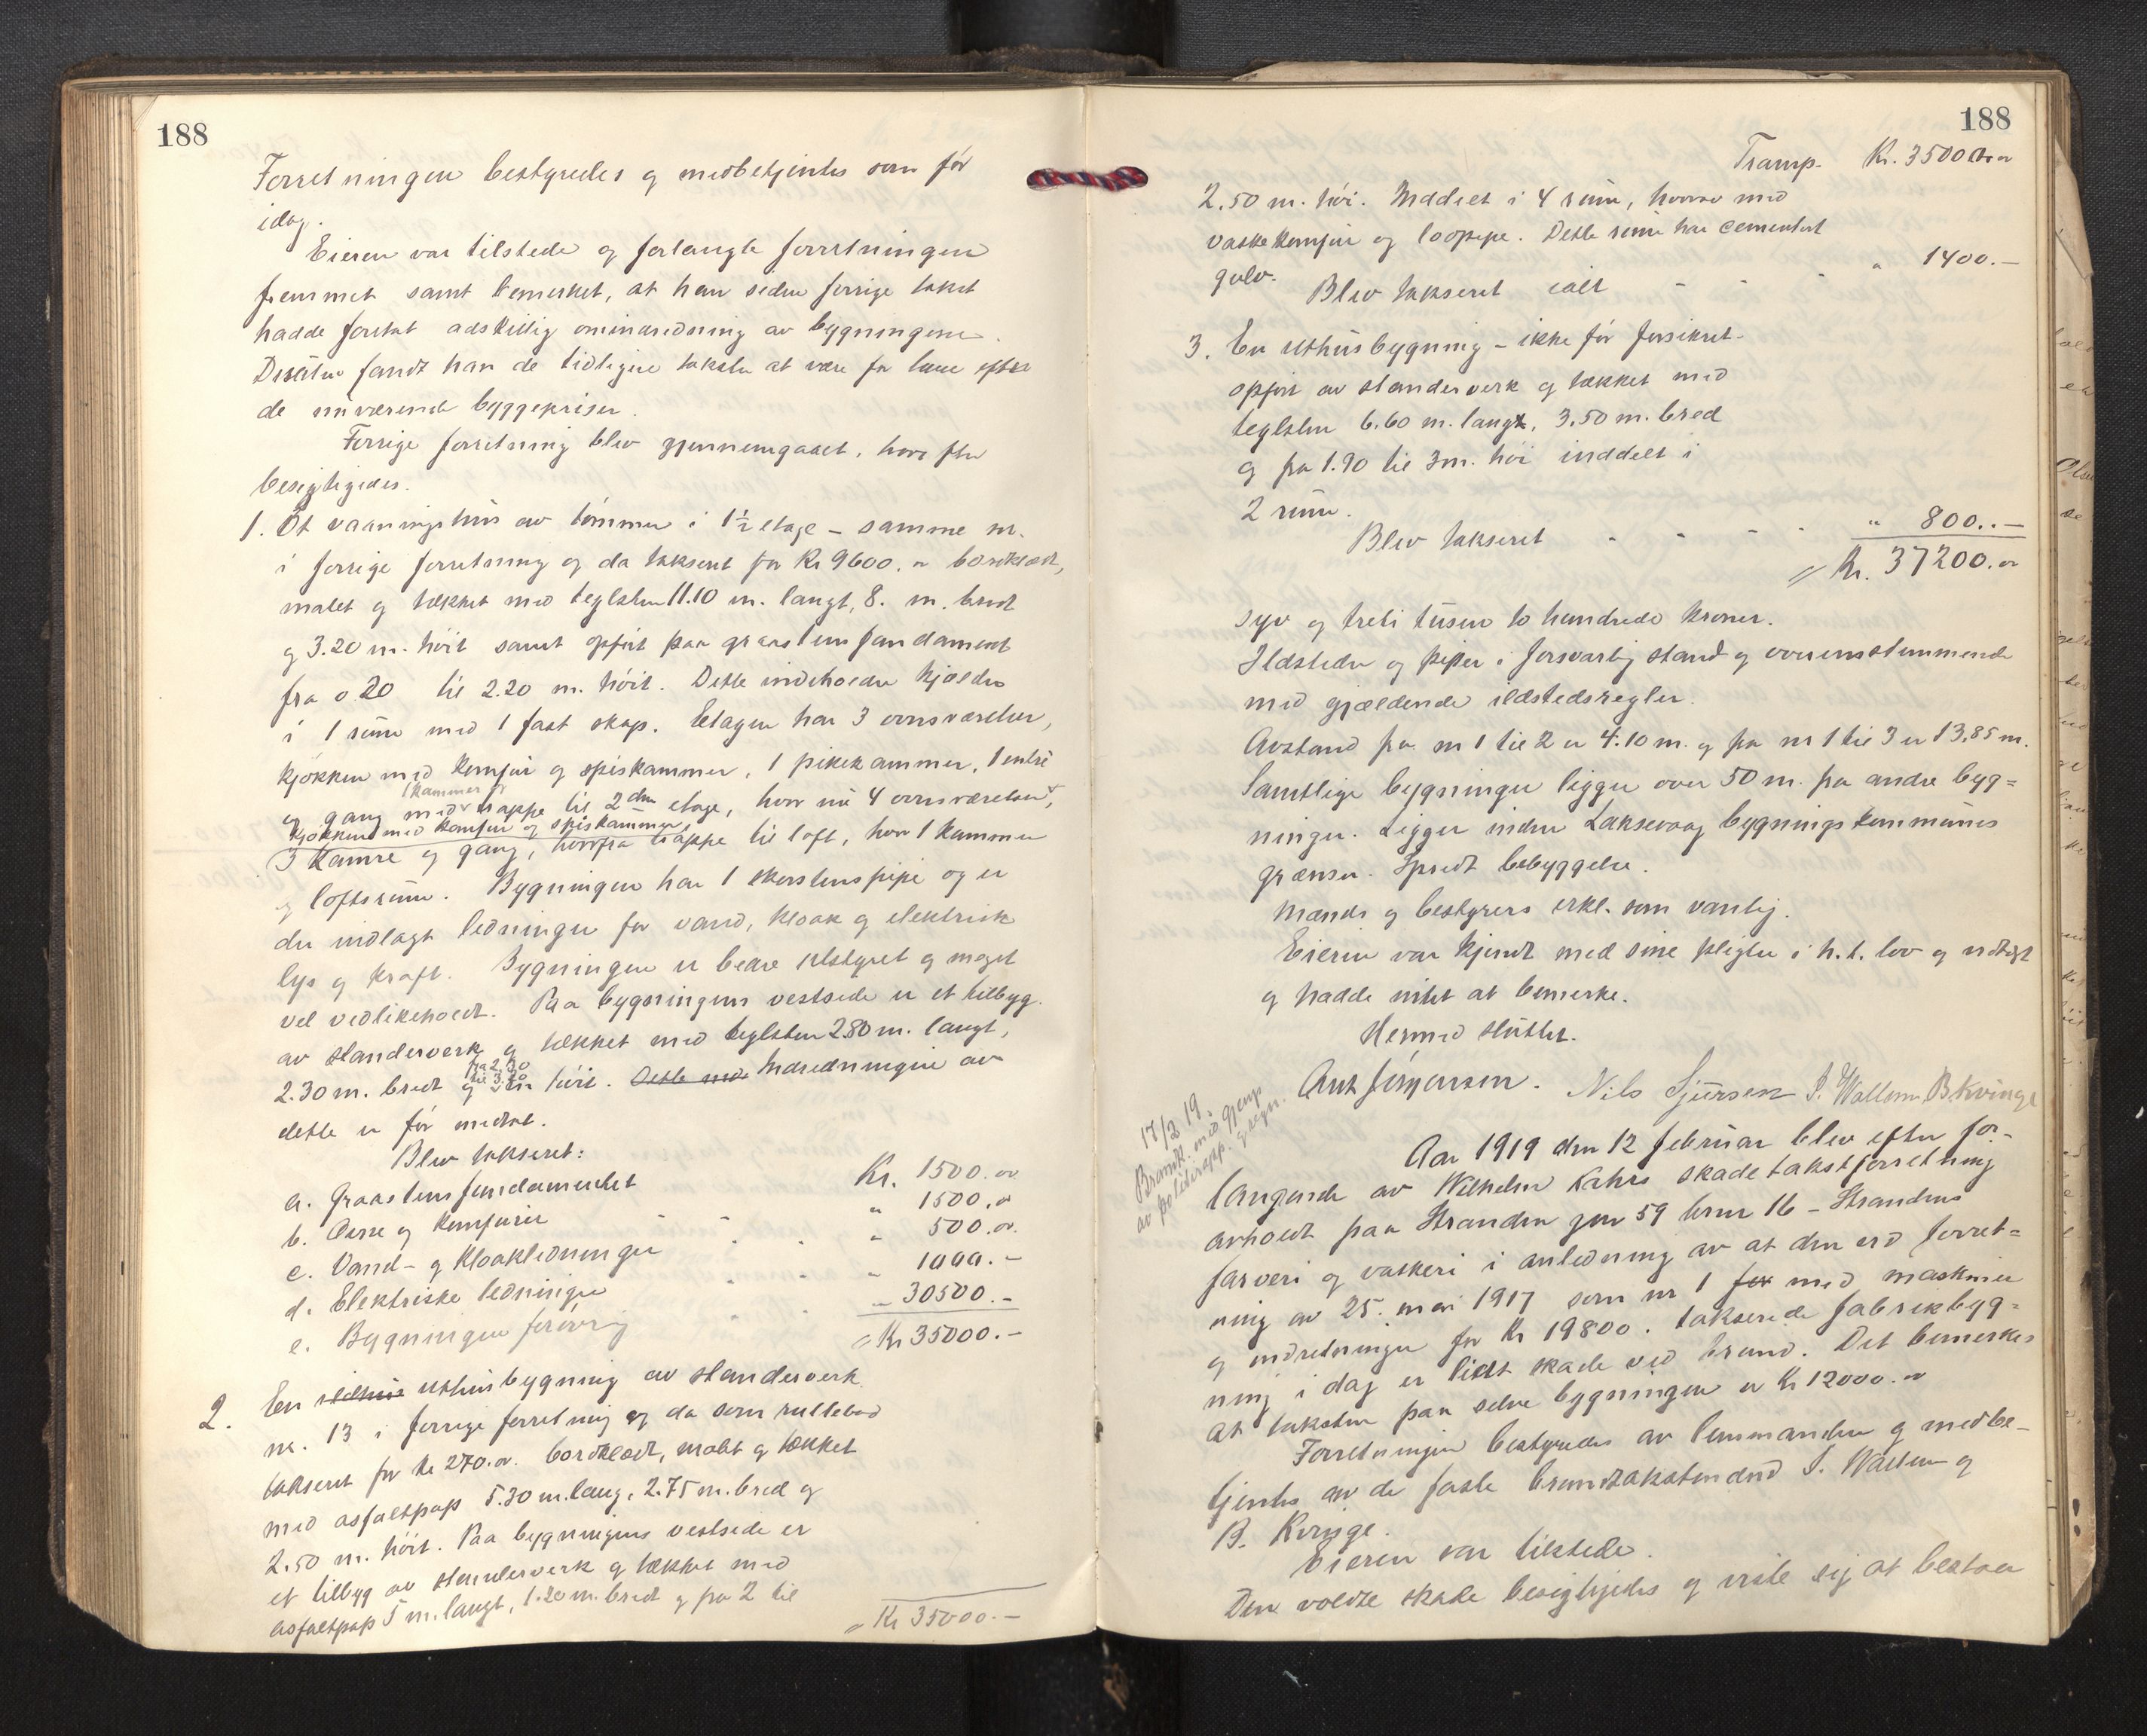 188
Forretningen bestyredes og medbetjentes som før
idag.
Eieren var tilstede og forlangte forretningen
fremmet samt bemerket, at han siden forrige takst
hadde foretat adskillig omindredning av bygningene.
Desuten fandt han de tidligere takster at være for lave efter
de nuværende byggepriser.
Forrige forretning blev gjennemgaaet, hvorefter
besigtigedes.
1. Et vaaningshus av tømmer i 1½ etage - samme nr.
i forrige forretning og da taksert for Kr 9600. or bordklædt,
malet og tækket med teglsten 11.10 m. langt, 8. m. bredt
og 3.20 m. høit samt opført paa graastensfundament
fra 0.20 til 2.20 m. høit. Dette indeholder kjælder
i 1 rum med 1 fast skap. Etagen har 3 ovnsværelser,
kjøkken med komfur og spiskammer, 1 pikekammer, 1 entre
1 kammer og
og gang med trappe til 2den etage, hvor nu 4 ovnsværelser,
kjøkken med komfur og spiskammer,
3 kamre og gang, hvorfra trappe til loft, hvor 1 kammer
og loftsrum. Bygningen har 1 skorstenspipe og er
der indlagt ledninger for vand, kloak og elektrisk
lys og kraft. Bygningen er bedre utstyret og meget
vel vedlikeholdt. Paa bygningens vestside er et tilbyg
av standerverk og tækket med teglsten 2.80 m. langt,
fra 2.30
til 3.20
2.30 m. bredt og høit. Dette med Indredningen av
dette er før medtat.
Blev taksert:
a. Graastensfundamentet Kr. 1500. or
b. Ovne og komfurer - - " 1500. or
c. Vand- og kloakledninger - - " 500. or
d. Elektriske ledninger - - " 1000. -
e. Bygningen forøvrig " 30500. -
= Kr 35000. -
2. En uthusbygning av standerverk
nr. 13 i forrige forretning og da som rullebod
taksert for kr 270. or. bordklædt, malt og tækket
med asfaltpap 5.30 m. lang, 2.75 m. bred og
2.50 m. høit. Paa bygningens vestside er
et tilbyg av standerverk og tækket med
asfaltpap 5 m. langt, 1.20 m. bredt og fra 2 til
= Kr 35000. -
188
Transp. Kr. 35000 or
2.50 m. høi. Inddelt i 4 rum, hvorav med
vaskekomfur og loopipe. Dette rum har cementert
gulv.
Blev taksert ialt - - - " 1400. -
3. En uthusbygning - ikke før forsikret -
opført av standerverk og tækket med
teglsten 6.60 m. lang, 3.50 m. bred
og fra 1.90 til 3 m. høi inddelt i
2 rum.
Blev taksert - - - " 800. -
= Kr. 37200. or
syv og treti tusen to hundrede kroner.
Ildsteder og piper i forsvarlig stand og overensstemmende
med gjældende ildstedsregler.
Avstand fra nr 1 til 2 er 4.10 m. og fra nr 1 til 3 er 13,85 m.
Samtlige bygninger ligger over 50 m. fra andre byg=
ninger. Ligger inden Laksevaag bygningskommunes
grænser. Spredt bebyggelse.
Mænds og bestyrers erkl. som vanlig.
Eieren var kjendt med sine pligter i h. t. lov og vedtægt
og hadde intet at bemerke.
Hermed sluttet.
Ant Jørgensen. Nils Sjursen S. Wallem B Kvinge
17/2 19.
Brandt. med gjenp
av politirapp. og regn.
Aar 1919 den 12 februar blev efter for-
langende av Wilhelm Kahrs skadetakstforretning
avholdt paa Stranden gnr 59 brnr 16 - Strandens
farveri og vaskeri i anledning av at den ved forret=
ning av 25. mai 1917 som nr 1 for med maskiner
og indretninger for Kr 19800. takserede fabrikbyg=
ning i dag er lidt skade ved brand. Det bemerkes
at taksten paa selve bygningen er Kr 12000. or
Forretningen bestyredes av lensmanden og medbe-
tjentes av de faste brandtakstmænd S. Wallem og
B. Kvinge.
Eieren var tilstede.
Den voldte skade besigtigedes og viste sig at bestaa